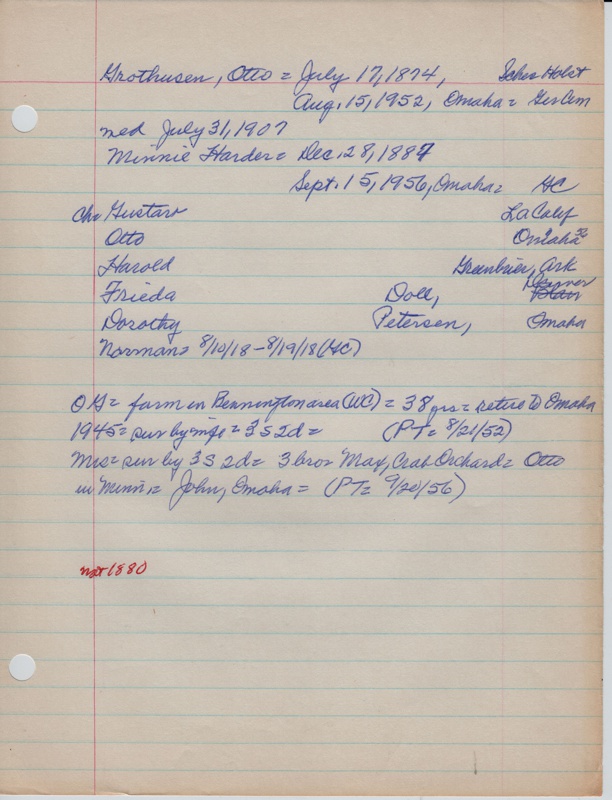 Grothusen, Otto = July 17, 1874, Schles Holst
Aug. 15, 1952, Omaha = Ger Cem
med July 31, 1907
Minnie Harder = Dec. 28, 1887
Sept. 15, 1956, Omaha = HC
Ch = Gustav La Calif
Otto Omaha
Harold Greenbrier, Ark
Frieda Doll, Denver Blair
Dorothy Petersen, Omaha
Norman = 8/10/18 - 8/19/18 (HC)
OG = farm in Bennington area (WC) = 38 yrs = retire to Omaha
1945 = sur by wife = 3 s 2 d = (PT = 8/21/52)
Mrs = sur by 3 S 2 d = 3 bro = Max, Crab Orchard = Otto
in Minn = John, Omaha = (PT = 9/20/56)
not 1880